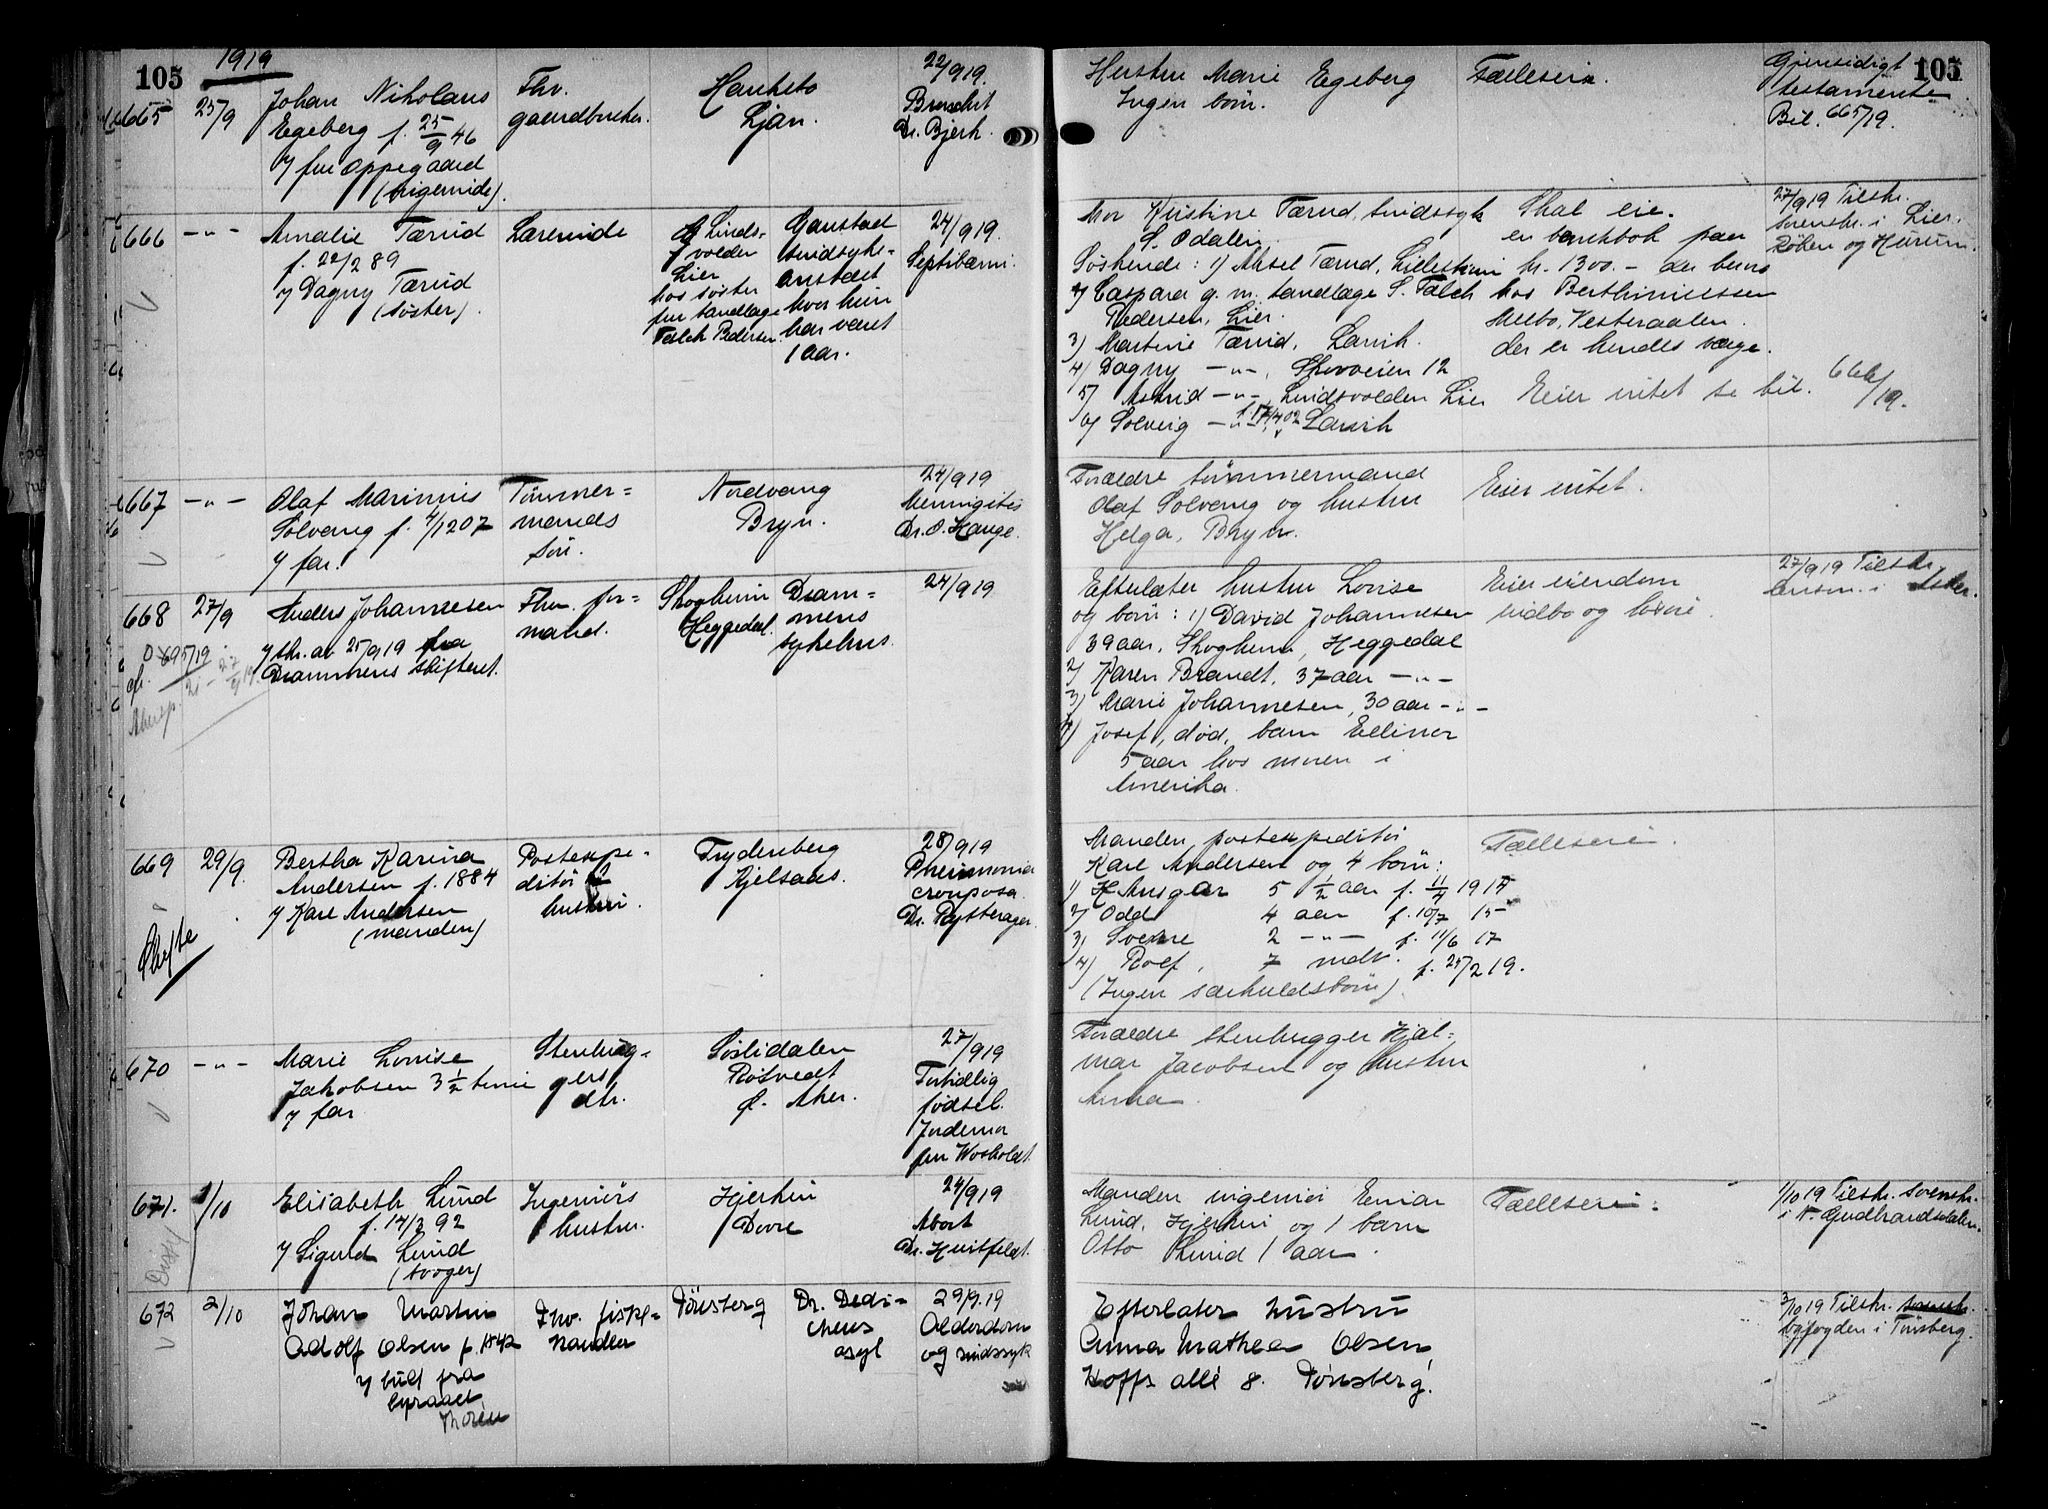 105
1919
665
25/9
Johan Nikolaus
Egeberg f. 25/9 46
v/ fru Oppegaard
(nigerinde).
Fhv.
gaardbruker.
Hauketo
Ljan.
22/9 19.
Bronchit
Dr. Bjerk.
Hustru Marie Egeberg
Ingen børn.
Fælleseie.
Gjensidigt
testamente
Bil. 665/19.
105
666
-"-
Amalie Tærud
f. 22/2 89
v/ Dagny Tærud
(søster).
Lærerinde
Linds-
volden
Lier
hos søster
fru tandlæge
Falch Pedersen.
Gaustad
sindsyke-
anstalt
hvor hun
har været
1 aar.
24/9 19.
Septikæmi.
Mor Kristine Tærud, sindssyk
S. Odalen.
Søskende: 1) Aksel Tærud, Lillestrøm
2) Caspara g. m. tandlæge S. Falch
Pedersen, Lier.
3) Martine Tærud, Larvik.
4) Dagny -"-, Skovveien 12
5) Astrid -"-, Lindsvolden Lier
6) Solveig -"- f. 17/4 02 Larvik
Skal eie
en bankbok paa
kr. 1300.- der beror
hos Berthinussen
Melbo, Vesteraalen.
der er hendes værge.
Eier intet se bil. 666/19.
27/9 19 Tilskr.
sorenskr. i Lier,
Røken og Hurum.
667
-"-
Olaf Marinius
Solvang f. 4/12 07
v/ far.
Tømmer-
mands
søn.
Nordvang
Bryn.
24/9 19
Meningitis
Dr. O. Hauge.
Forældre tømmermand
Olaf Solvang og hustru
Helga, Bryn.
Eier intet.
668
27/9
Anders Johannesen
v/ skr. av 25/9 19 fra
Drammens skifteret.
695/19
Fhv. for-
mand.
Skogheim
Heggedal.
Dram-
mens
sykehus.
24/9 19
Efterlater hustru Lovise
og børn: 1) David Johannesen
39 aar, Skogheim, Heggedal
2) Karen Brandt, 37 aar -"-
3) Marie Johannesen, 30 aar -"-
4) Josef, død, barn Ellinor
5 aar hos moren i
Amerika.
Eier eiendom
indbo og løsøre.
27/9 19 Tilskr.
lensm. i Asker.
669
29/9.
Skifte
Bertha Karina
Andersen f. 1884
v/ Karl Andersen
(manden)
Postexpe-
ditør
hustru.
Frydenberg
Kjelsaas.
28/9 19
Pneumonia
crouposa.
Dr. Rytterager.
Manden postexpeditør
Karl Andersen og 4 børn:
1) H Ansgar 5 1/2 aar f. 11/4 1914
2) Odd 4 aar f. 10/7 15
3) Sverre 2 -"- f. 11/6 17
4) Rolf, 7 mdr. f. 25/2 19.
(Ingen særkuldsbørn)
Fælleseie.
670
-"-
Marie Lovise
Jakobsen 3 1/2 time
v/ far
Stenhug-
gers
dtr.
Sørlidalen
Røtvedt
Ø. Aker.
27/9 19
Fortidlig
fødsel.
Jordemor
fru Wosholdt
Forældre stenhugger Hjal-
mar Jacobsen og hustru
Anna.
671.
1/10
Elisabeth Lund
f. 14/3 92
v/ Sigurd Lund
(svoger)
Ingeniørs
hustru.
Hjerkin
Dovre
24/9 19
Abort
Dr. Huitfeldt.
Manden ingeniør Einar
Lund, Hjerkin og 1 barn
Otto Lund 1 aar.
Fælleseie.
1/10 19 Tilskr. sorenskr.
i N. Gudbrandsdalen.
672
2/10
Johan Martin
Adolf Olsen f. 1842
v/ bud fra
byraaet
Thorén
Fhv. fiske-
handler
Tønsberg
Dr. Dedi-
chens
asyl
29/9. 19
Alderdom
og sindssyk
Efterlater hustru
Anna Mathea Olsen,
Hoffs allé 8. Tønsberg.
3/10 19 Tilskr. sorenskr.
byfogden i Tønsberg.